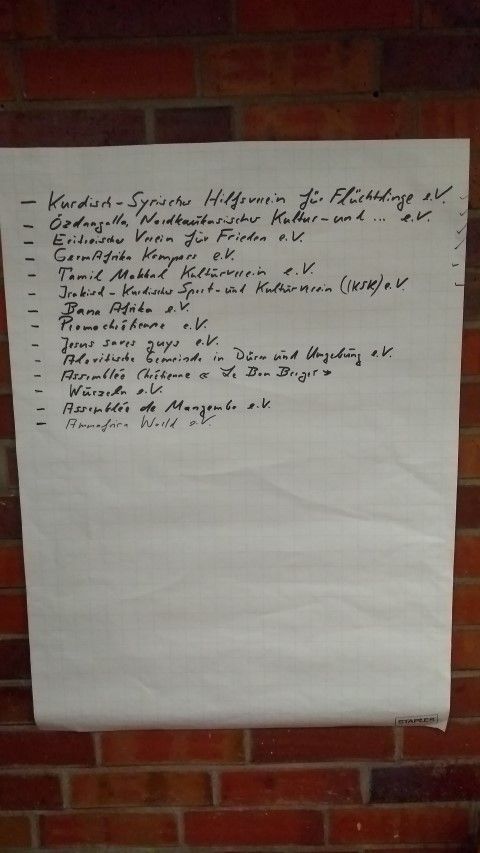 - Kurdisch-Syrischer Hilfsverein für Flüchtlinge e.V.
- Özdangalla, Nordkaukasischer Kultur-und ... e.V.
- Eritreischer Verein für Frieden e.V.
- GermAfrika Kompass e.V.
- Tamil Makkal Kulturverein e.V.
- Irakisch-Kurdischer Sport-und Kulturverein (IKSK) e.V.
- Bana Afrika e.V.
- Promochrétienne e.V.
- Jesus saves guys e.V.
- Alevitische Gemeinde in Düren und Umgebung e.V.
- Assemblée Chrétienne « Le Bon Berger »
- Wurzeln e.V.
- Assemblée de Mangembo e.V.
- World e.V.
STAPLES